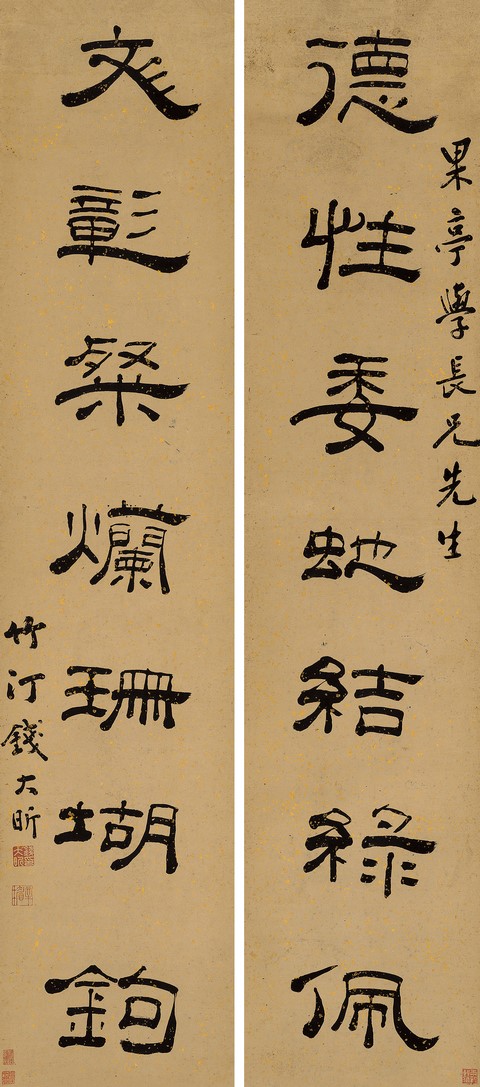 果亭學長兄先生
德性委虵結綠佩
彣彰粲爛珊瑚鉤
竹汀錢大昕